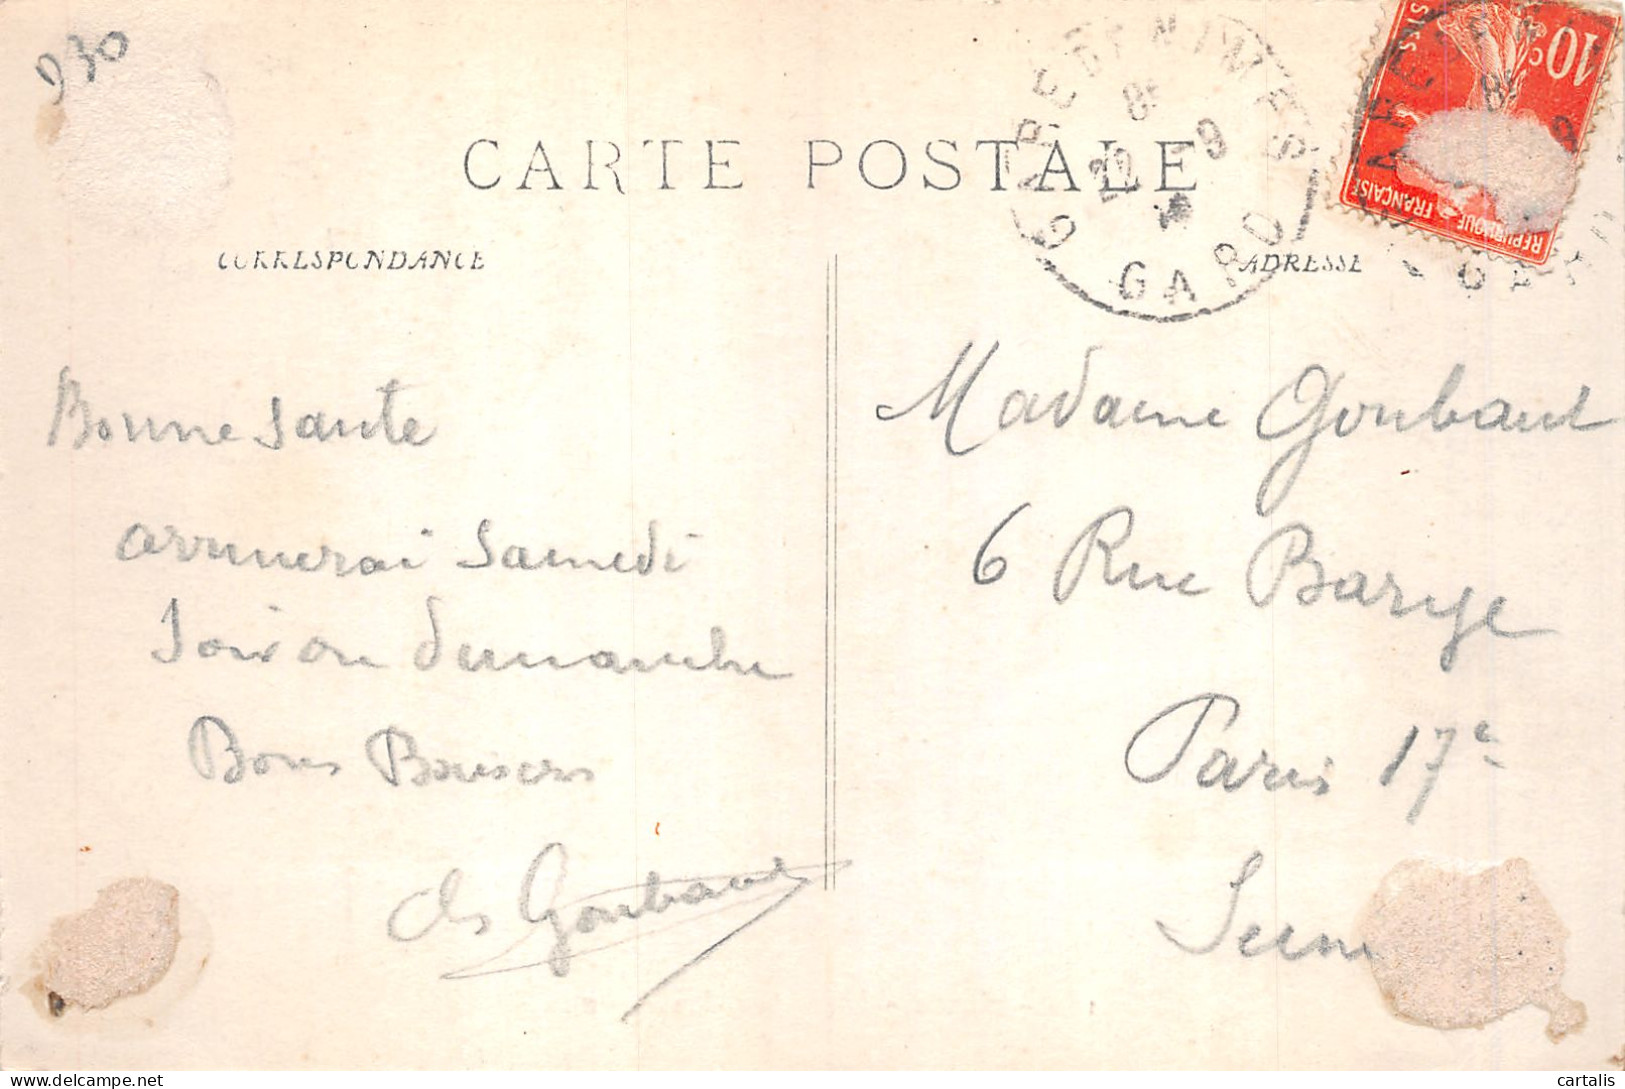 930
CARTE POSTALE
CORRESPONDANCE
ADRESSE
GARE DE NIMES
22 9
GARD
10 c
RÉPUBLIQUE FRANÇAISE
Bonne sante
arriverai samedi
soir ou demanche
Bons Baisers
Ch Goubaud
Madame Goubaud
6 Rue Barye
Paris 17e
Seine
cartalis